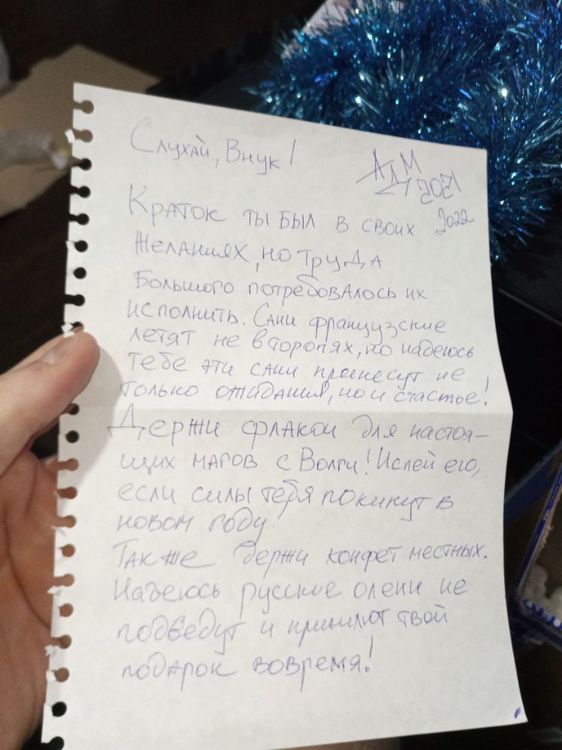 Слухай, Внук!
АДМ
2021
2022
Краток ты был в своих
желаниях, но труда
большого потребовалось их
исполнить. Сани французские
летят не второпях, но надеюсь
тебе эти сани принесут не
только ожидания, но и счастье!
Держи флакон для настоя-
щих магов с Волги! Испей его,
если силы тебя покинут в
новом году.
Также держи конфет местных.
Надеюсь русские олени не
подведут и пришлют твой
подарок вовремя!